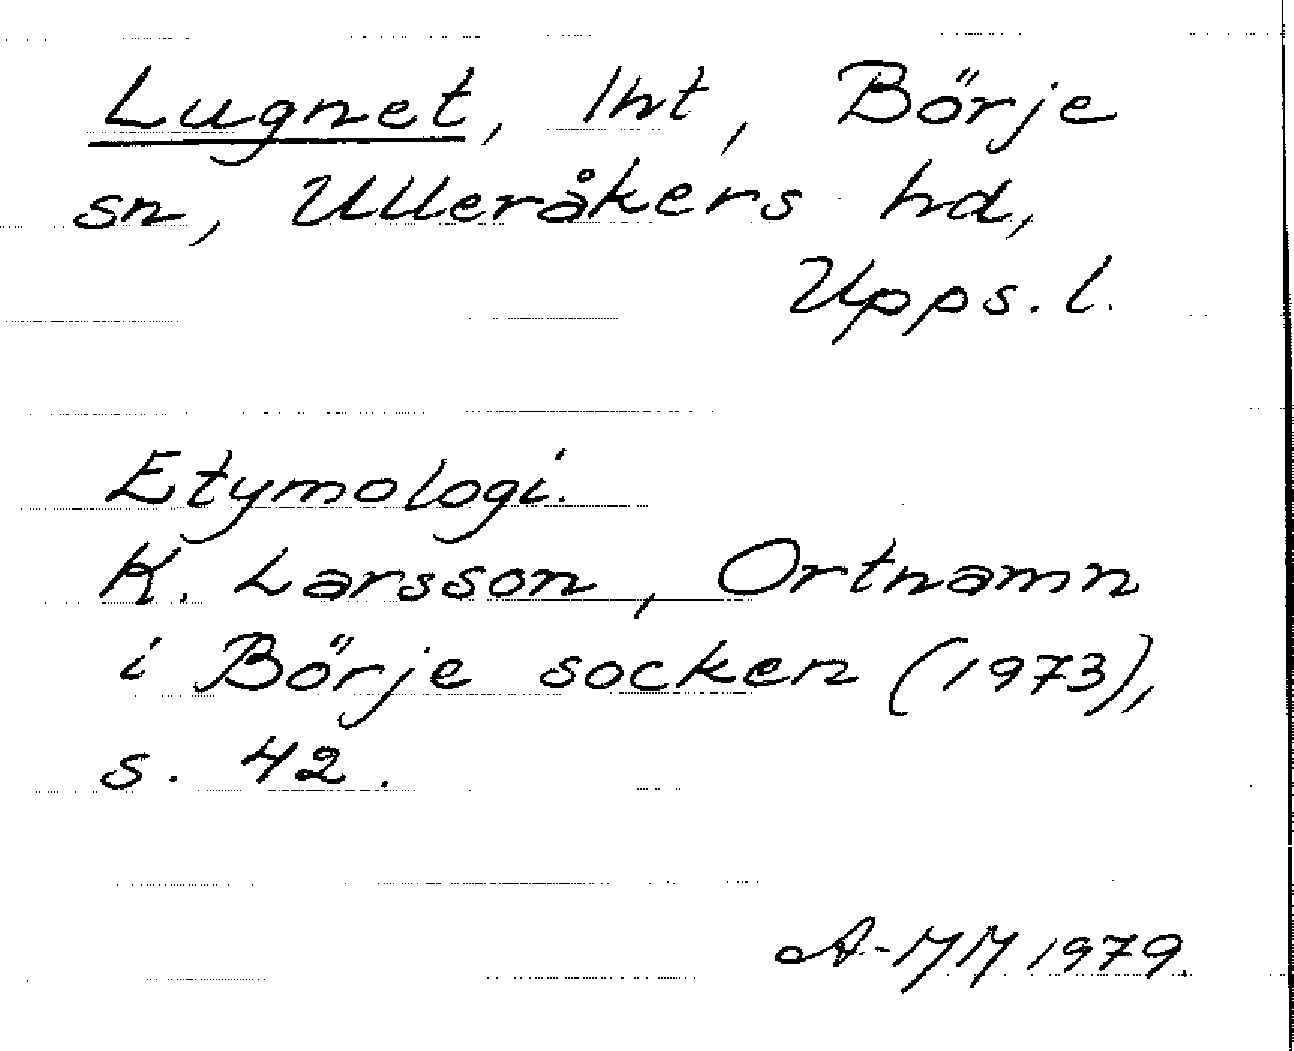 Lugnet, lht, Börje
sn, Ulleråkers hd,
Upps. l.
Etymologi.
K. Larsson, Ortnamn
i Börje socken (1973),
s. 42.
A-MM 1979.